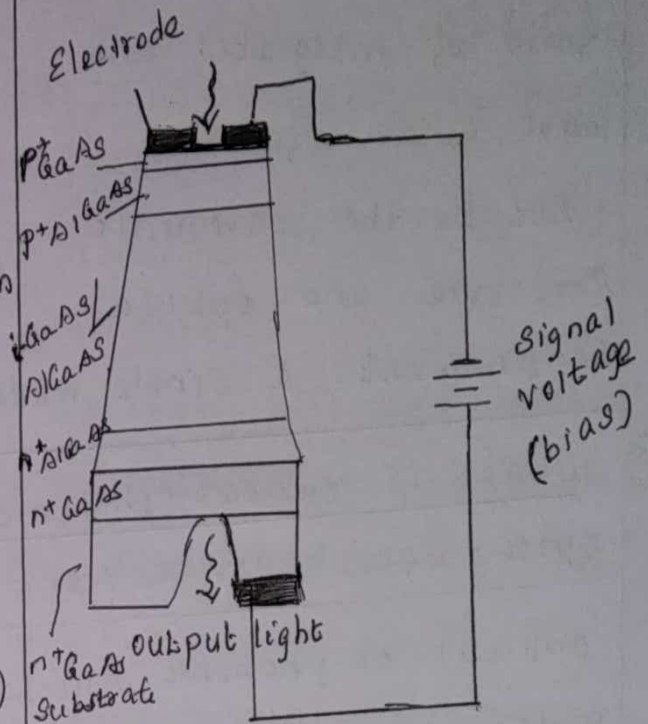 Electrode
P+GaAs
P+AlGaAs
i-GaAs/
AlGaAs
n+AlGaAs
n+GaAs
n+GaAs
substrate
output light
Signal
voltage
(bias)